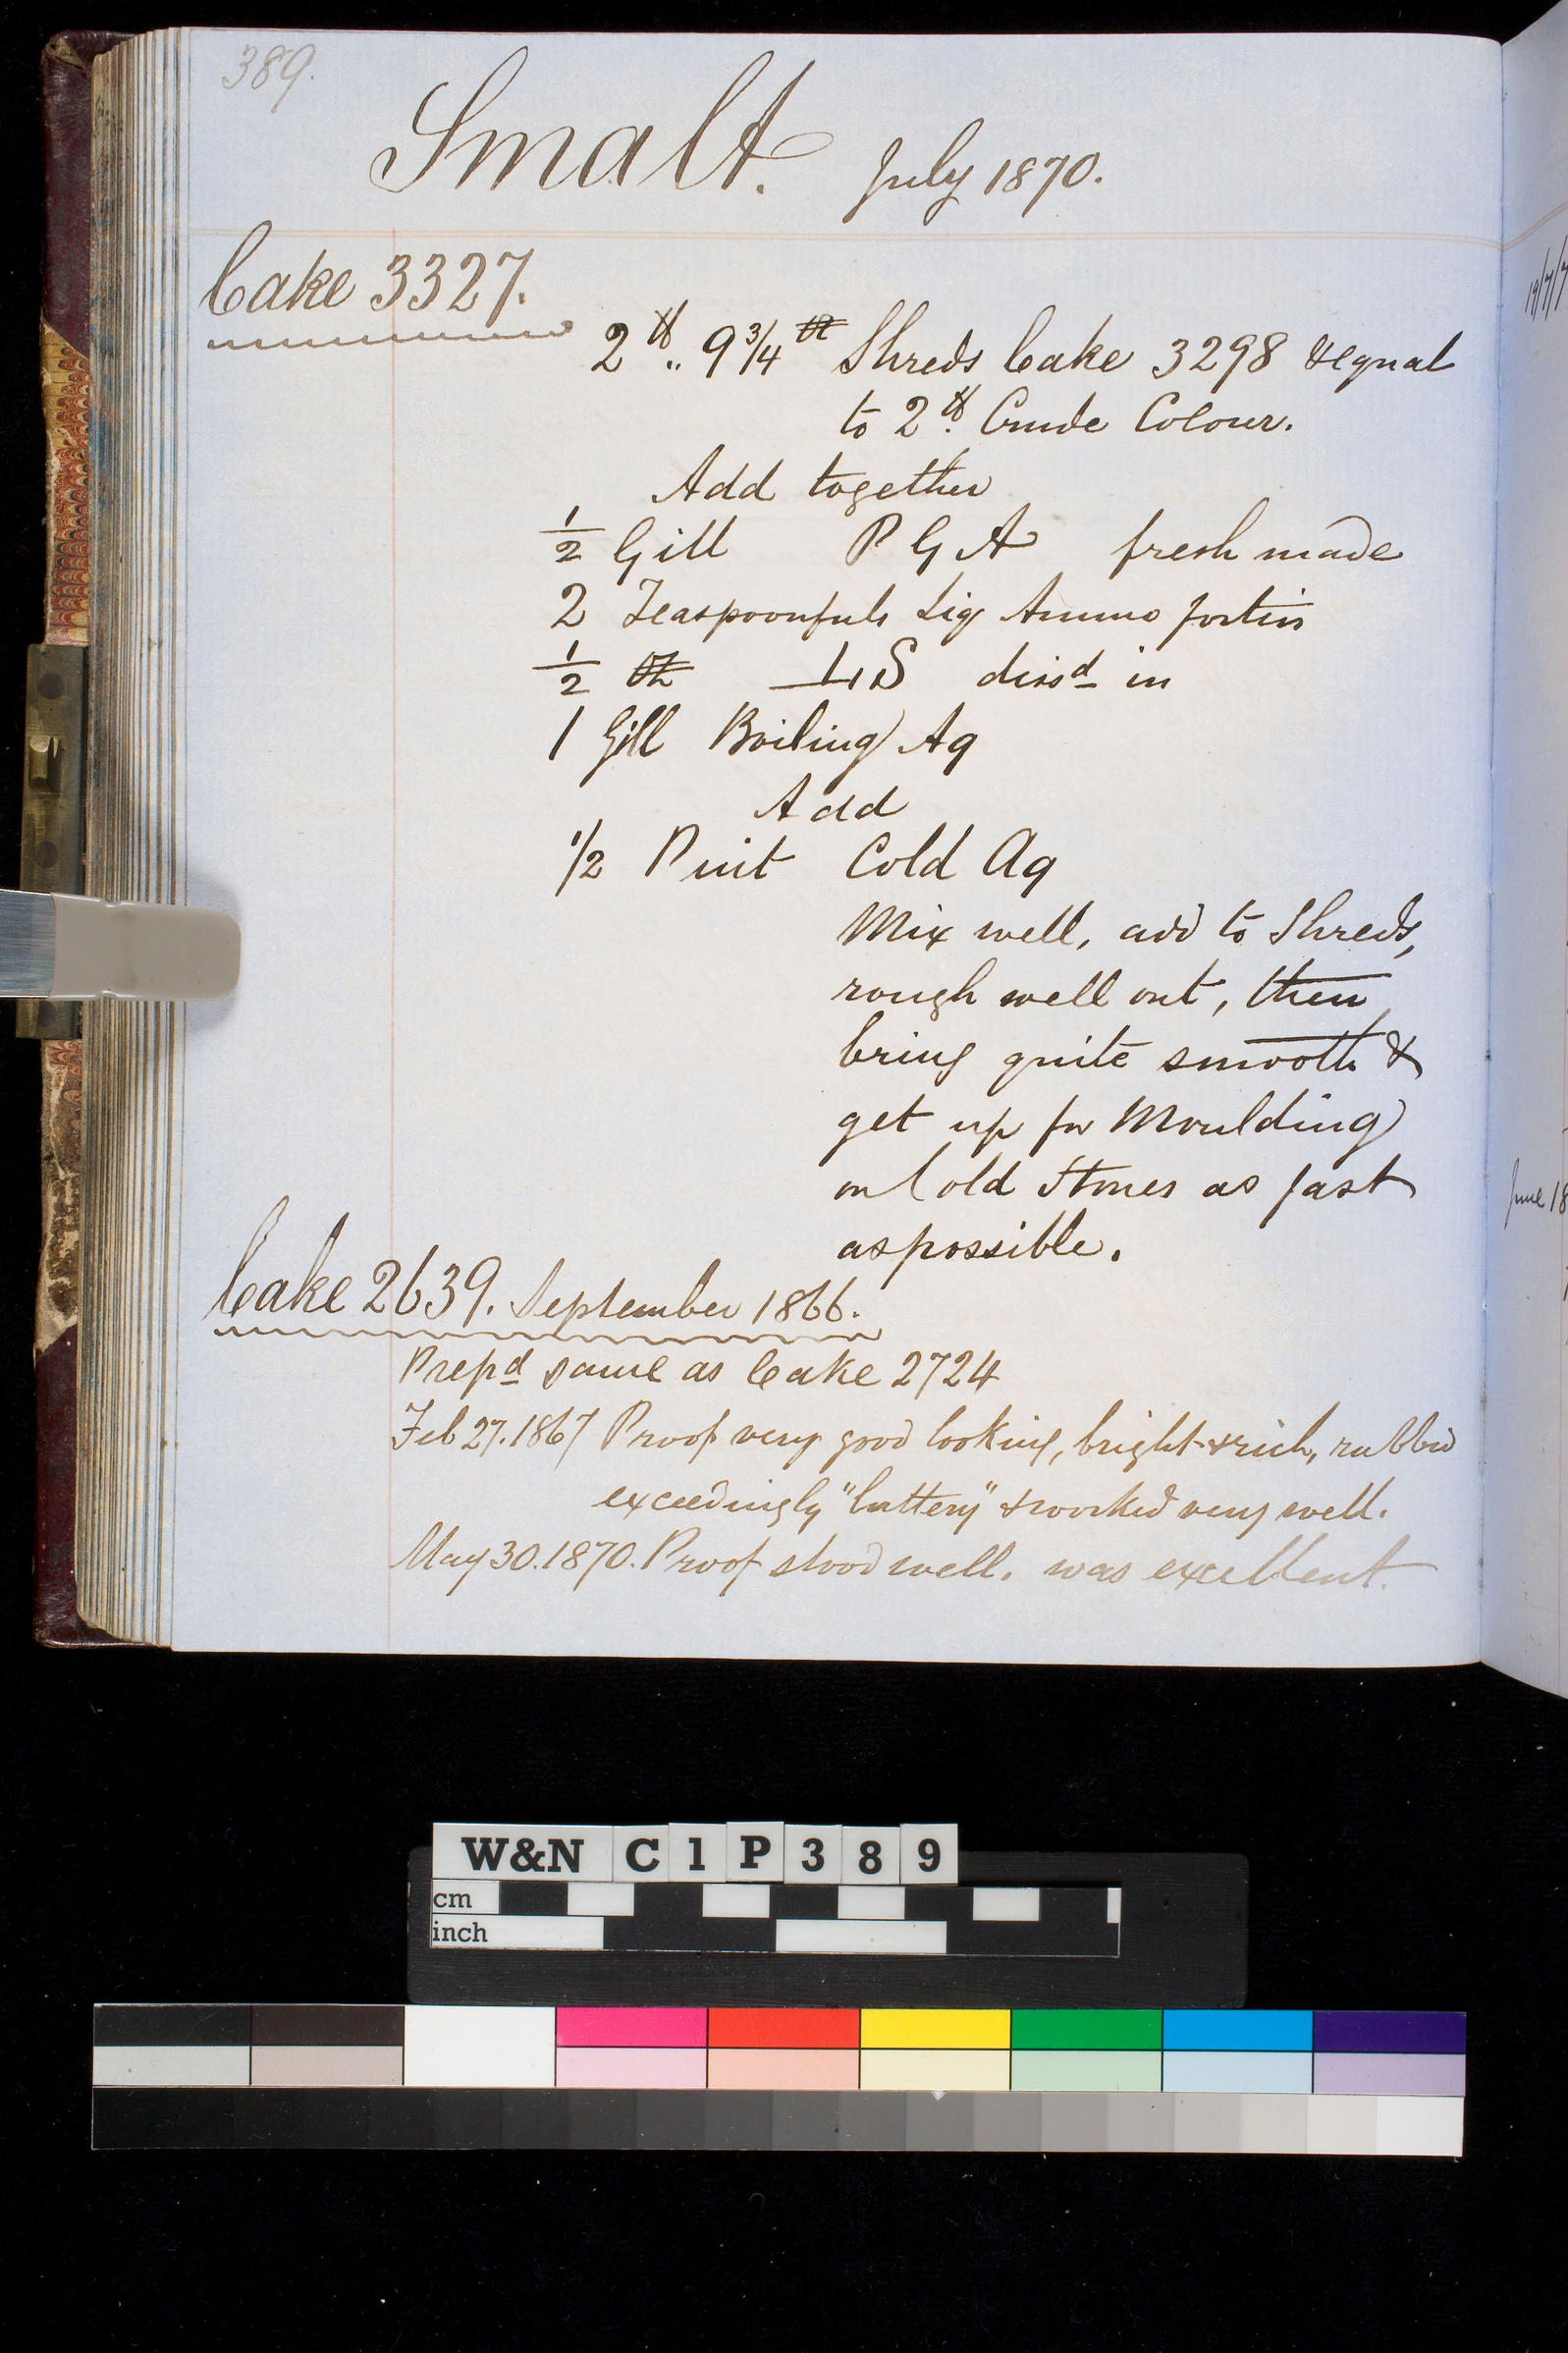 389.
Smalt. July 1870.
Cake 3327.
2 lb .. 9 3/4 oz Shreds Cake 3298 & equal
to 2 lb. Crude Colour.
Add together
1/2 Gill P G A fresh made
2 Teaspoonfuls Liq Ammo fortis
1/2 oz L S dissd in
1 Gill Boiling Aq
Add
1/2 Pint Cold Aq
Mix well, add to Shreds,
rough well out, then
bring quite smooth &
get up for Moulding
on Cold Stones as fast
as possible.
Cake 2639. September 1866.
Prepd same as Cake 2724
Feb 27. 1867 Proof very good looking, bright & rich, rubbed
exceedingly "buttery" & worked very well.
May 30. 1870. Proof stood well, was excellent.
19/7/7
June 18
W&N C 1 P 3 8 9
cm
inch